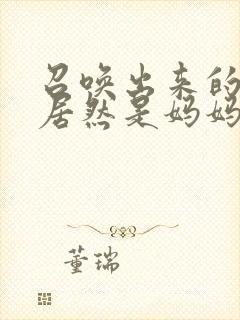 召唤出来的
居然是妈妈
董瑞